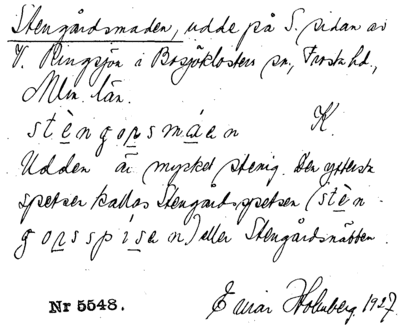 Stengårdsmaden, udde på S. sidan av
V. Ringsjön i Bosjöklosters sn, Frosta hd.,
Mlm. län.
stèngonsmáen K
Udden är mycket stenig. Den yttersta
spetsen kallas Stengårdsspetsen (stèn-
gonsspísen) eller Stengårdsnäbben.
Nr 5548. Einar Holmberg. 1927.